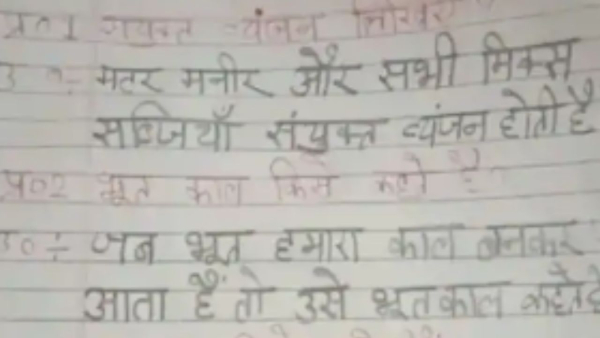 प्र०1 संयुक्त व्यंजन लिखिए
उ०- मटर मनीर और सभी मिक्स
सब्जियाँ संयुक्त व्यंजन होती है
प्र०2 भूत काल किसे कहते है
उ०÷ जब भूत हमारा काल बनकर
आता हैं तो उसे भूतकाल कहते है